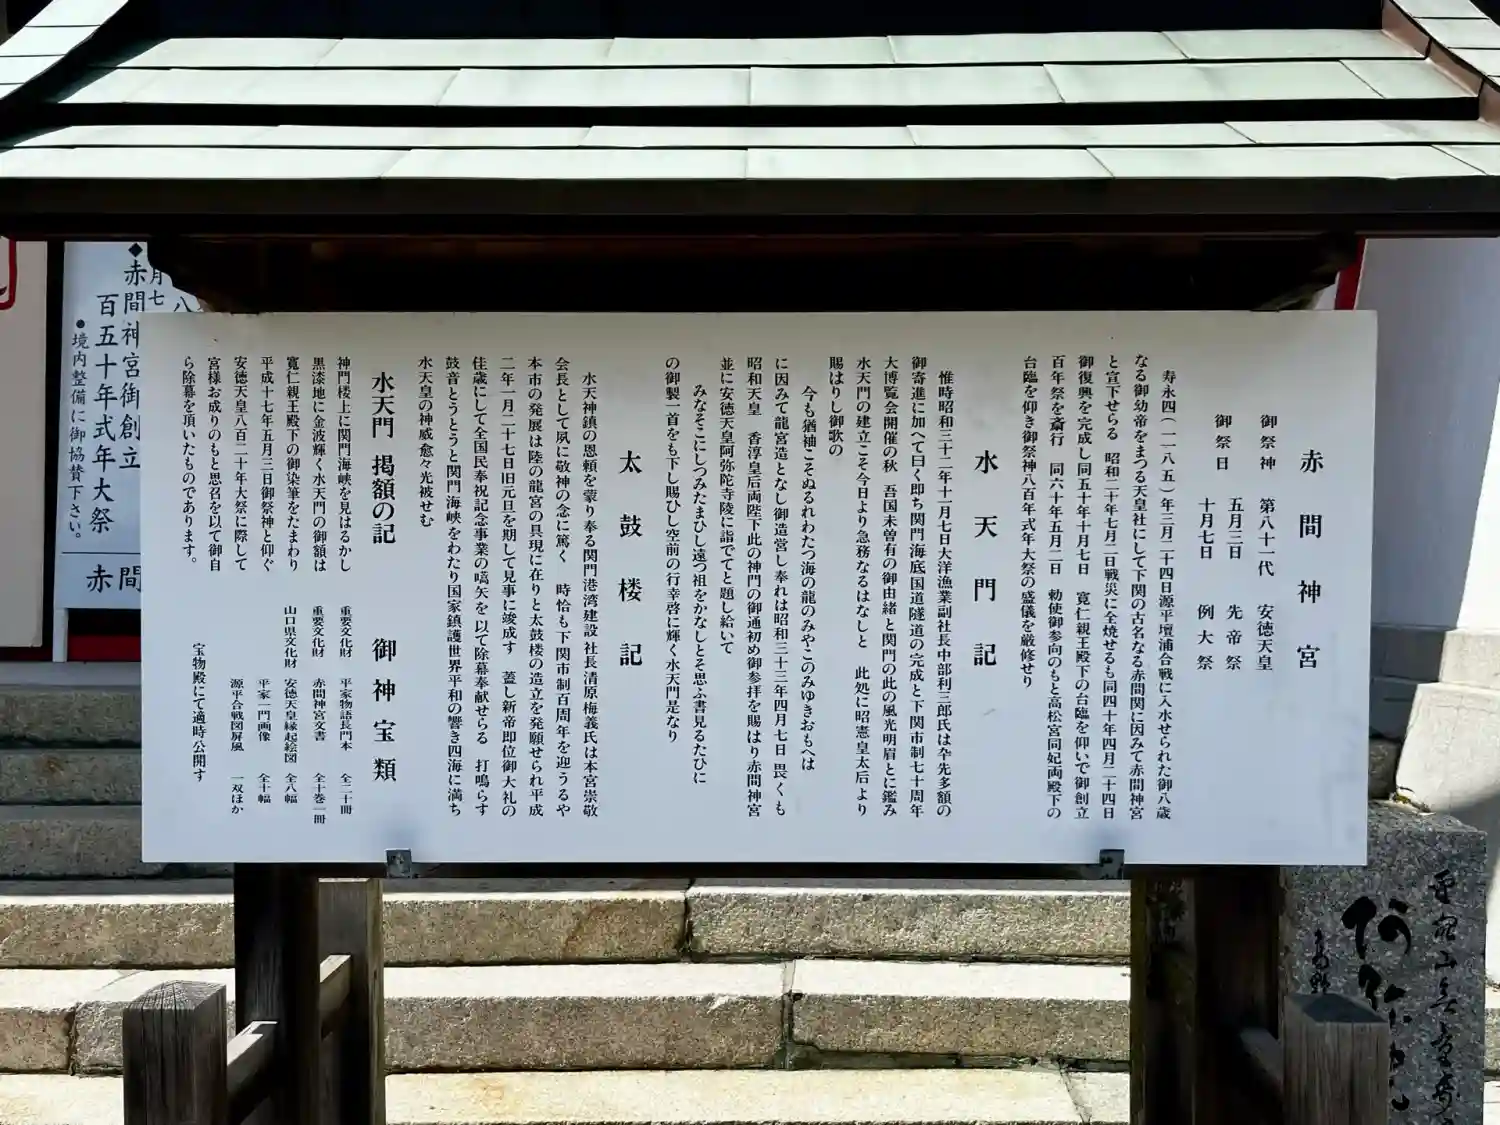 赤間神宮
御祭神　第八十一代　安徳天皇
御祭日　五月三日　先帝祭
十月七日　例大祭
寿永四(一一八五)年三月二十四日源平壇浦合戦に入水せられた御八歳
なる御幼帝をまつる天皇社にして下関の古名なる赤間関に因みて赤間神宮
と宣下せらる　昭和二十年七月二日戦災に全焼せるも同四十年四月二十四日
御復興を完成し同五十年十月七日　寛仁親王殿下の台臨を仰いで御創立
百年祭を斎行　同六十年五月二日　勅使御参向のもと高松宮同妃両殿下の
台臨を仰き御祭神八百年式年大祭の盛儀を厳修せり
水天門記
惟時昭和三十二年十一月七日大洋漁業副社長中部利三郎氏は卆先多額の
御寄進に加へて曰く即ち関門海底国道隧道の完成と下関市制七十周年
大博覧会開催の秋　吾国未曽有の御由緒と関門の此の風光明眉とに鑑み
水天門の建立こそ今日より急務なるはなしと　此処に昭憲皇太后より
賜はりし御歌の
今も猶袖こそぬるれわたつ海の龍のみやこのみゆきおもへは
に因みて龍宮造となし御造営し奉れは昭和三十三年四月七日　畏くも
昭和天皇　香淳皇后両陛下此の神門の御通初め御参拝を賜はり赤間神宮
並に安徳天皇阿弥陀寺陵に詣でてと題し給いて
みなそこにしつみたまひし遠つ祖をかなしとそ思ふ書見るたひに
の御製一首をも下し賜ひし空前の行幸啓に輝く水天門是なり
太鼓楼記
水天神鎮の恩頼を蒙り奉る関門港湾建設社長清原梅義氏は本宮崇敬
会長として夙に敬神の念に篤く　時恰も下関市制百周年を迎うるや
本市の発展は陸の龍宮の具現に在りと太鼓楼の造立を発願せられ平成
二年一月二十七日旧元旦を期して見事に竣成す　蓋し新帝即位御大礼の
佳歳にして全国民奉祝記念事業の嚆矢を以て除幕奉献せらる　打鳴らす
鼓音とうとうと関門海峡をわたり国家鎮護世界平和の響き四海に満ち
水天皇の神威愈々光被せむ
水天門　掲額の記
神門楼上に関門海峡を見はるかし
黒漆地に金波輝く水天門の御額は
寛仁親王殿下の御染筆をたまわり
平成十七年五月三日御祭神と仰ぐ
安徳天皇八百二十年大祭に際して
宮様お成りのもと思召を以て御自
ら除幕を頂いたものであります。
御神宝類
重要文化財　平家物語長門本　全二十冊
重要文化財　赤間神宮文書　全十巻一冊
山口県文化財　安徳天皇縁起絵図　全八幅
平家一門画像　全十幅
源平合戦図屏風　一双ほか
宝物殿にて適時公開す
月七
八
◆赤間神宮御創立
百五十年式年大祭
●境内整備に御協賛下さい。
赤間